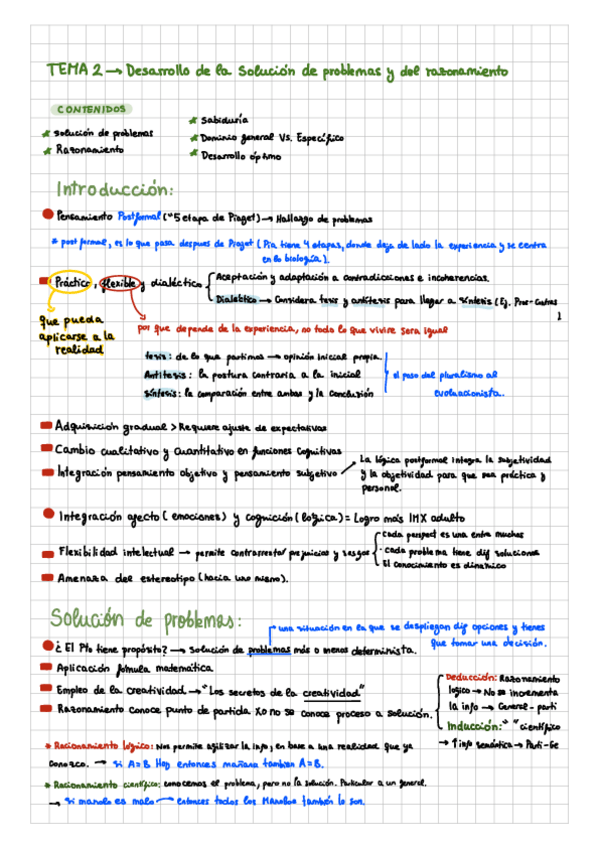 TEMA 2 → Desarrollo de la solución de problemas y del razonamiento
CONTENIDOS
★ Solución de problemas
★ Razonamiento
★ Sabiduría
★ Dominio general Vs. Específico
★ Desarrollo óptimo
Introducción:
Pensamiento Postformal ("5 etapa de Piaget) → Hallazgo de problemas
* post formal, es lo que pasa despues de Piaget (Pia tiene 4 etapas, donde deja de lado la experiencia y se centra
en lo biología).
Práctico, flexible y dialéctico
Aceptación y adaptación a contradicciones e incoherencias.
Dialéctico → Considera tesis y antítesis para llegar a síntesis (Ej. Pros-Contras
)
que pueda
aplicarse a la
realidad
por que depende de la experiencia, no todo lo que vivire sera igual
tesis: de lo que partimos → opinión inicial propia.
Antítesis: la postura contraria a la inicial
síntesis: la comparación entre ambas y la conclusión
el paso del pluralismo al
evolucionista.
Adquisición gradual > Requiere ajuste de expectativas
Cambio cualitativo y cuantitativo en funciones cognitivas
Integración pensamiento objetivo y pensamiento subjetivo
La lógica postformal integra la subjetividad
y la objetividad para que sea práctica y
personal.
Integración afecto (emociones) y cognición (lógica) = Logro más IMX adulto
Flexibilidad intelectual → permite contrarrestar prejuicios y sesgos
· cada perspect es una entre muchas
· cada problema tiene dif soluciones
El conocimiento es dinámico
Amenaza del estereotipo (hacia uno mismo).
Solución de problemas:
una situación en la que se despliegan dif opciones y tienes
que tomar una decisión.
¿El Pto tiene propósito? → Solución de problemas más o menos determinista.
Aplicación fórmula matemática.
Empleo de la creatividad → "Los secretos de la creatividad"
Razonamiento conoce punto de partida Xo no se conoce proceso a solución.
Deducción: Razonamiento
logico → No se incrementa
la info → General - parti
Inducción: " " científico
→ ↑ info semántica → Parti-Ge
* Racionamiento lógico: Nos permite agilizar la info, en base a una realidad que ya
conozco. → si A=B Hoy entonces mañana tambien A=B.
* Racionamiento científico: conocemos el problema, pero no la solución. Particular a un general.
→ si manolo es malo → entonces todos los Manolos también lo son.